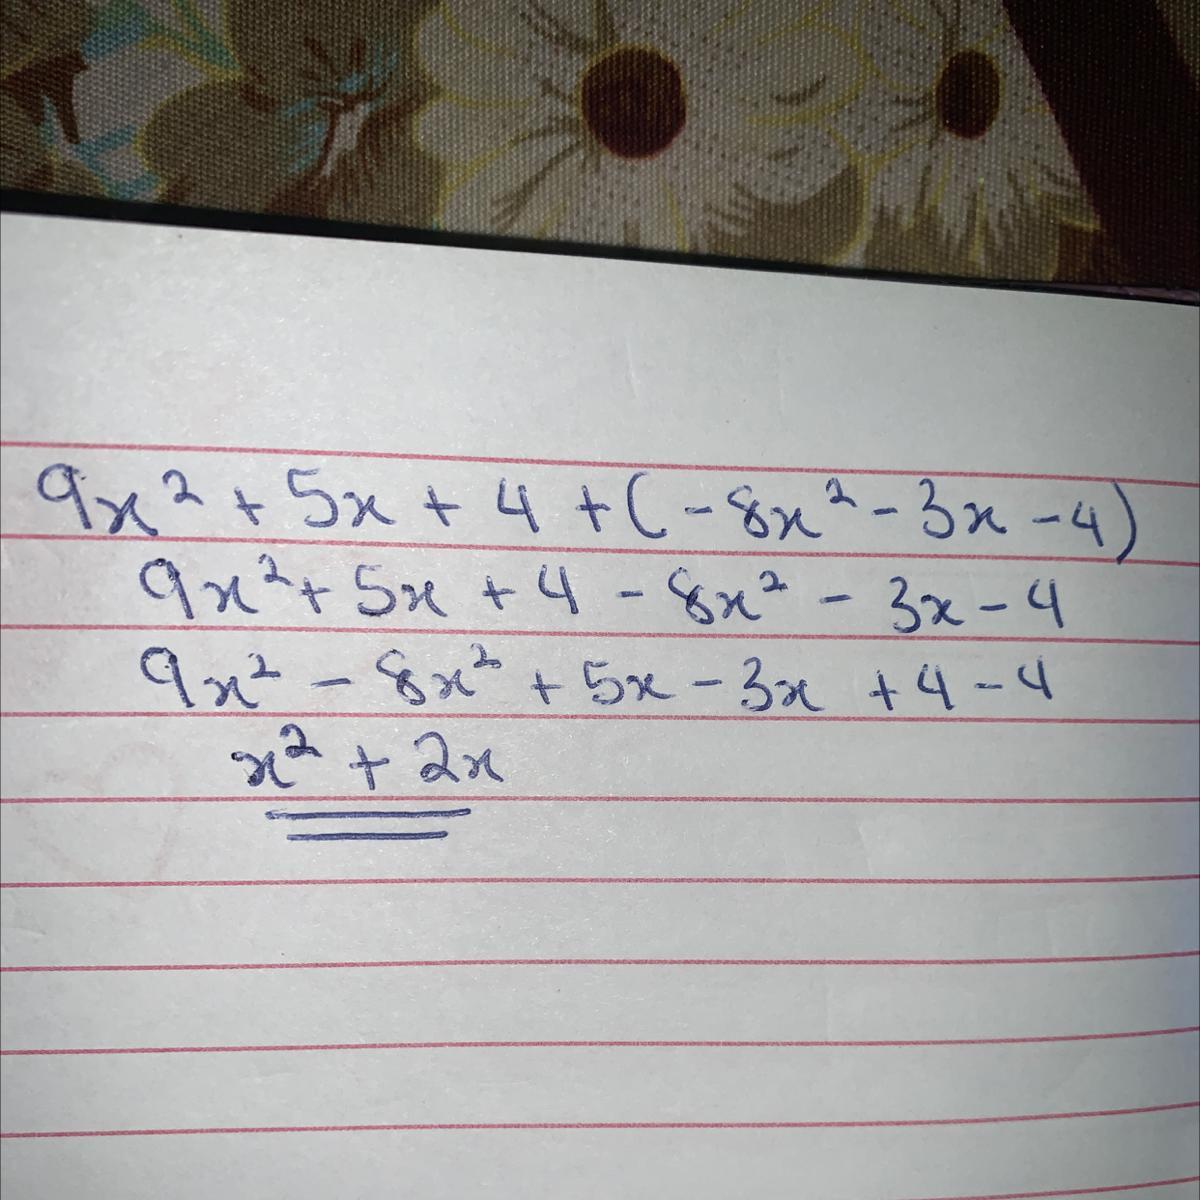 9x² + 5x + 4 + (-8x² - 3x - 4)
9x² + 5x + 4 - 8x² - 3x - 4
9x² - 8x² + 5x - 3x + 4 - 4
x² + 2x